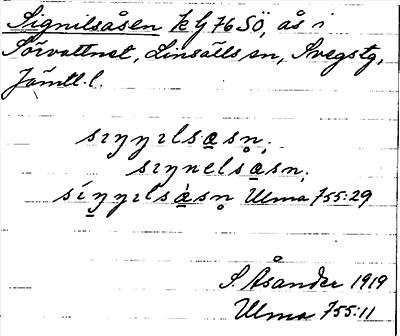 Signilsåsen k G 76 SÖ, ås i
Sörvattnet, Linsälls sn, Svegs tg,
Jämtl. l.
sɪŋŋɪlsa̱sn̥,
sɪŋnelsa̱sn,
Ulma 755:29
S. Åsander 1919
Ulma 755:11